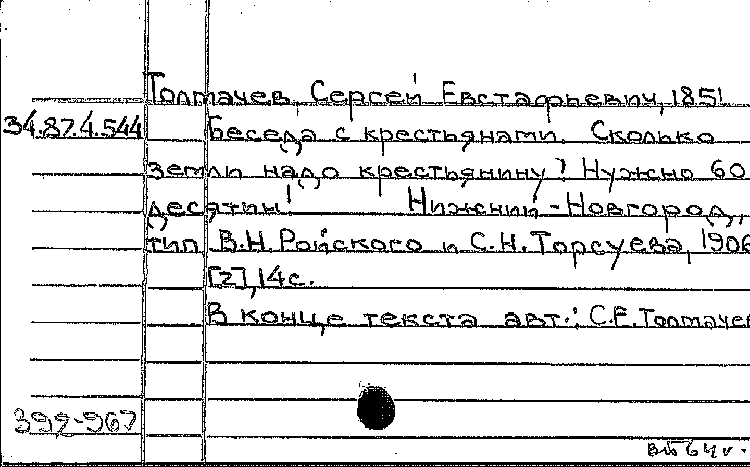 Толмачев, Сергей Евстафьевич, 1851
34.87.4.544
Беседа с крестьянами. Сколько
земли надо крестьянину? Нужно 60
десятин! Нижний-Новгород,
тип. В.Н.Ройского и С.Н.Торсуева, 1906
[2], 14 с.
В конце текста авт.: С.Е.Толмачев
392-967